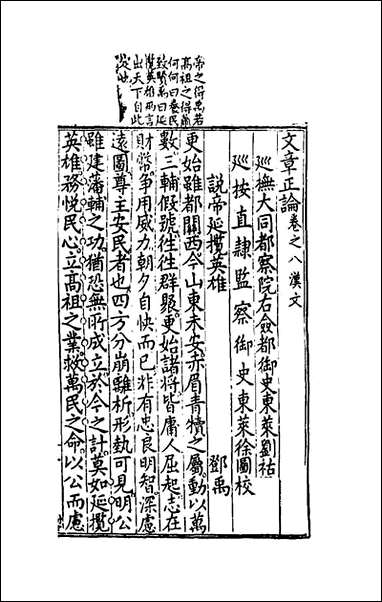 帝之得禹若
高祖之得蕭
何何曰養民
致賢禹曰延
攬英雄兩言
出天下自此
文章正論卷之八漢文
廵撫大同都察院右僉都御史東萊劉祜
廵按直隷監察御史東萊徐圖校
說帝延攬英雄 鄧禹
更始雖都關西今山東未安赤眉青犢之屬動以萬
數三輔假號徃徃群聚更始諸將皆庸人屈起志在
財幣爭用威力朝夕自快而已非有忠良明智深慮
遠圖尊主安民者也四方分崩離析形埶可見明公
雖建藩輔之功猶恐無所成立於今之計莫如延攬
英雄務悅民心立高祖之業救萬民之命以公而慮